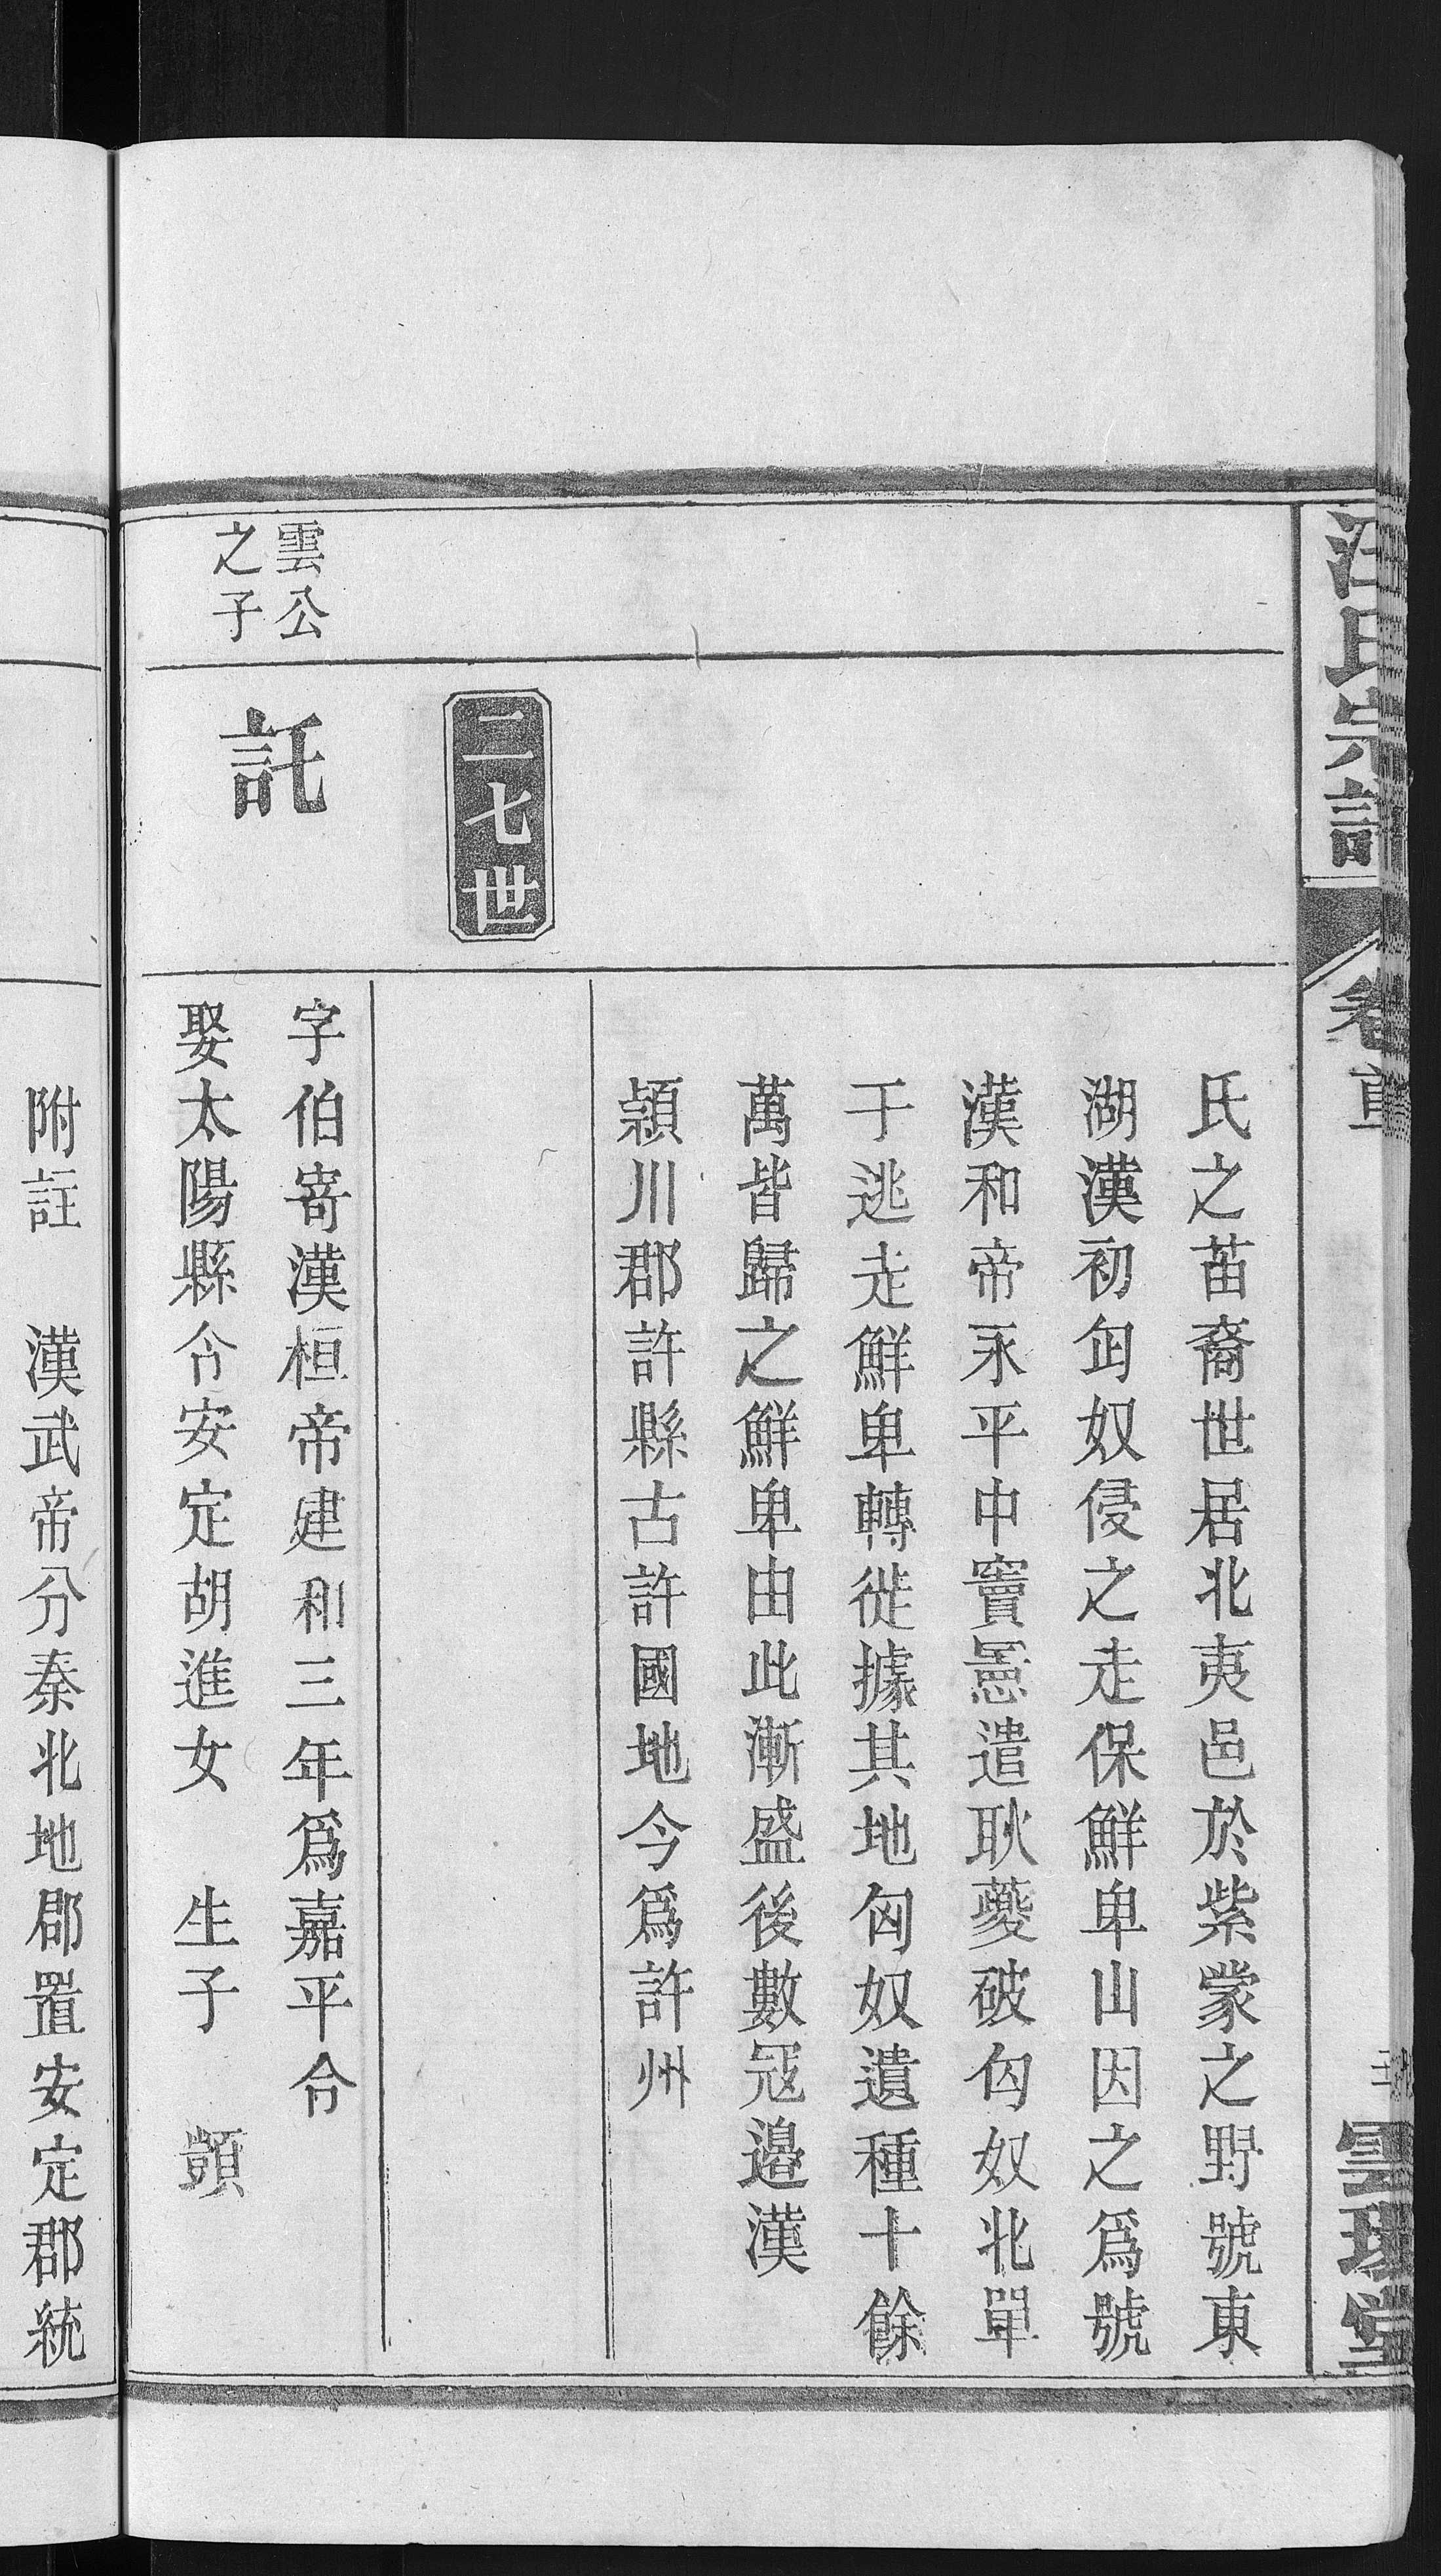 汪氏宗譜
卷首
雲瑞堂
氏之苗裔世居北夷邑於紫蒙之野號東
湖漢初匈奴侵之走保鮮卑山因之爲號
漢和帝永平中竇憲遣耿夔破匈奴北單
于逃走鮮卑轉徙據其地匈奴遺種十餘
萬皆歸之鮮卑由此漸盛後數冦邉漢
頴川郡許縣古許國地今爲許州
二七世
雲公
之子
託
字伯寄漢桓帝建和三年爲嘉平令
娶太陽縣令安定胡進女 生子 顗
附註 漢武帝分秦北地郡置安定郡統